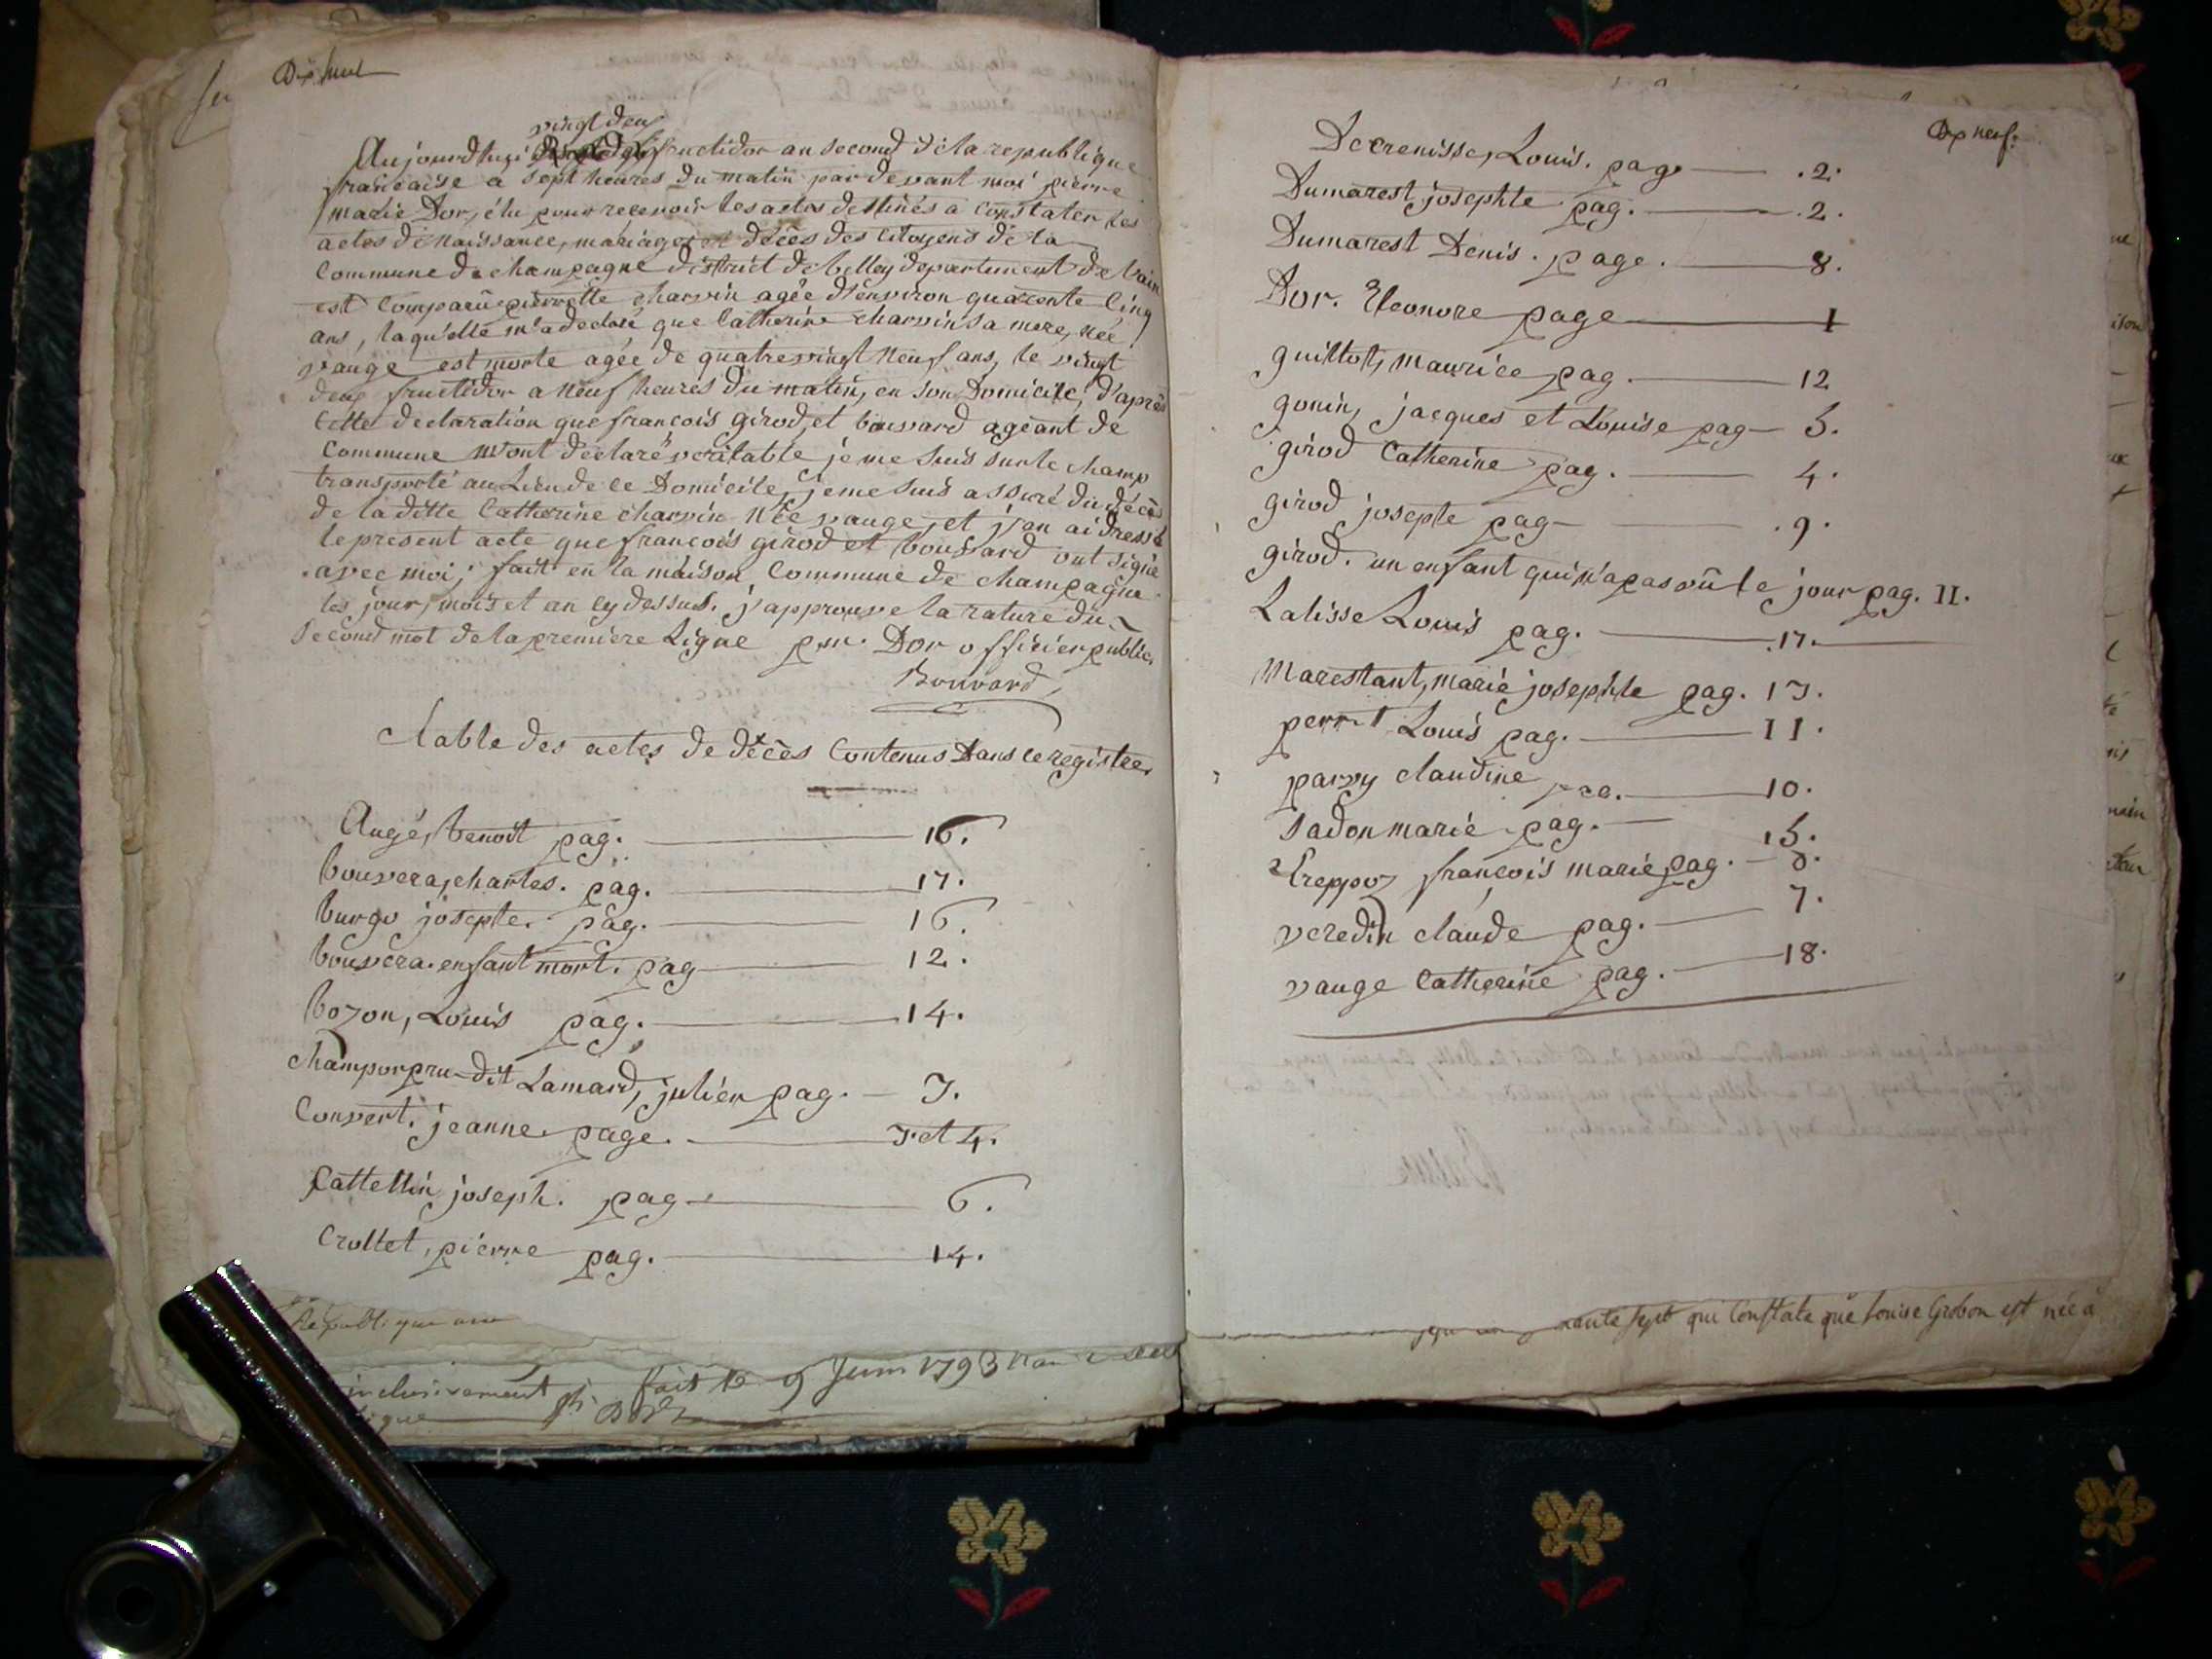 Dix huit
vingt deux
Aujourdhui fructidor an second de la republique
francaise a sept heures du matin par devant moi pierre
marie Dor, élu pour recevoir les actes destinés a constater les
actes de naissance, mariages et décès des citoyens de la
Commune de champagne district de belley departement de l'ain
est comparüe pierrette charvin agée d'environ quarente cinq
ans, laquelle m'a declaré que Catherine charvin sa mere, née
vauge est morte agée de quatrevingt neuf ans, le vingt
deux fructidor a neuf heures du matin, en son Domicile; d'après
cette declaration que francois girod, et bouvard agéant de
Commune m'ont déclaré véritable je me suis sur le champ
transporté au Lieu de ce Domicile, je me suis assuré du décès
de la ditte Catherine charvin née vauge, et j'en ai dressé
le present acte que francois girod et bouvard ont signé
avec moi; fait en la maison Commune de champagne
les jour, mois et an cy dessus. j'approuve la rature du
second mot de la premiere Ligne p.m. Dor officier public,
Bouvard
Table des actes de décès Contenus Dans ce registre,
Augé, benoit pag. 16.
bouvera, charles. pag. 17.
burgo josephte. pag. 16.
bouvera. enfant mort. pag 12.
bozon, Louis pag. 14.
champorpru-dit Lamard, julien pag. 3.
Convert. jeanne page. 3 et 4.
Cattellin joseph. pag 6.
Crollet, pierre pag. 14.
République une
inclusivement fait le 9 Juin 1793 l'an 2
Dix neuf.
Decrenisse, Louis. page 2.
Dumarest josephte pag. 2.
Dumarest Denis. page. 8.
Dor. Eleonore page 1
guillot, maurice pag. 12
gonin, jacques et Louise pag 5.
girod Catherine pag. 4.
girod josephte pag 9.
girod. un enfant qui n'a pas vû le jour pag. 11.
Lalisse Louis pag. 17.
Marestant, marie josephte pag. 13.
perret Louis pag. 11.
parvy claudine pag. 10.
Sadon marie pag. 15.
Treppoz françois marie pag. 8.
veredin claude pag. 7.
vauge Catherine pag. 18.
rante sept qui Constate que Louise Grobon est née à